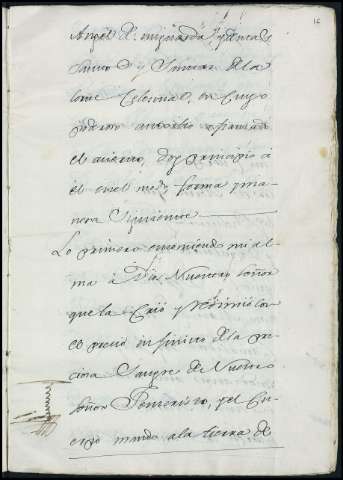 16
Angel de mi guarda, y demas
Santos y Santas de la
Corte Celestial, en cuyo
amparo
el acierto, doy principio á
el en el me y forma y ma
nera siguiente
Lo primero encomiendo mi al
ma à Dios Nuestro Señor
que la Crió y redimió con
el precio infinito de la pre
ciosa Sangre de Nuestro
Señor Jesucristo, y el Cu
erpo mando a la tierra de